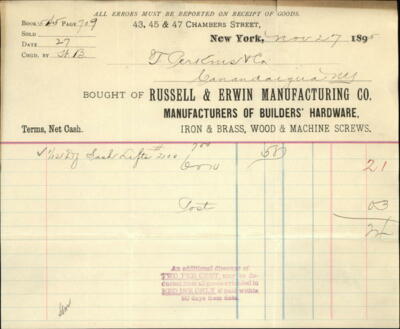 ALL ERRORS MUST BE REPORTED ON RECEIPT OF GOODS.
BOOK 545 PAGE 709
43, 45 & 47 CHAMBERS STREET,
SOLD
New York, Nov 27 1895
DATE 27
CHGD. BY H.B
T Perkins & Co
Canandaigua NY
BOUGHT OF RUSSELL & ERWIN MANUFACTURING CO.
MANUFACTURERS OF BUILDERS' HARDWARE,
Terms, Net Cash.
IRON & BRASS, WOOD & MACHINE SCREWS.
Sash Lifts
50
21
Post
03
24
An additional discount of
TWO PER CENT. may be de-
ducted
RED INK ONLY if paid within
days from date.